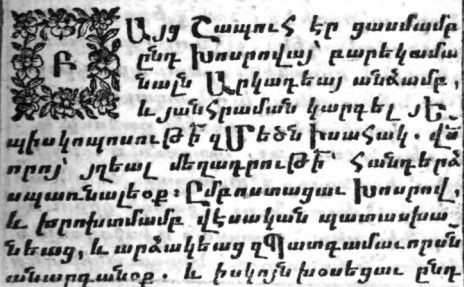 Բ
Այց Շապուհ էր ցասմամբ
ընդ Խոսրովայ՝ բարեկամա
նալն Արկադեայ անձամբ,
և յանհրաման կարգել յԵ
պիսկոպոսութի՛ զՄեծն Իսահակ. վս՛
որոյ՝ յղեալ մեղադրութի՛՝ հանդերձ
սպառնալեօք։ Ընբոստացաւ Խոսրով,
և խրոխտմամբ վէսական պատասխա
նեաց, և արձակեաց զՊատգամաւորսն
անարգանօք. և իսկոյն խօսեցաւ ընդ